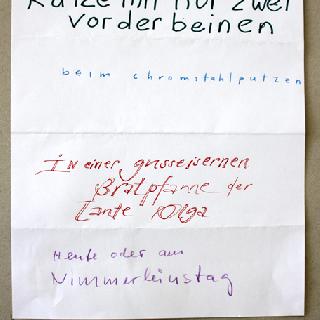 Katze mit nur zwei
vorderbeinen
beim chromstahlputzen
In einer gusseisernen
Bratpfanne der
Tante Olga
Heute oder am
Nimmerleinstag